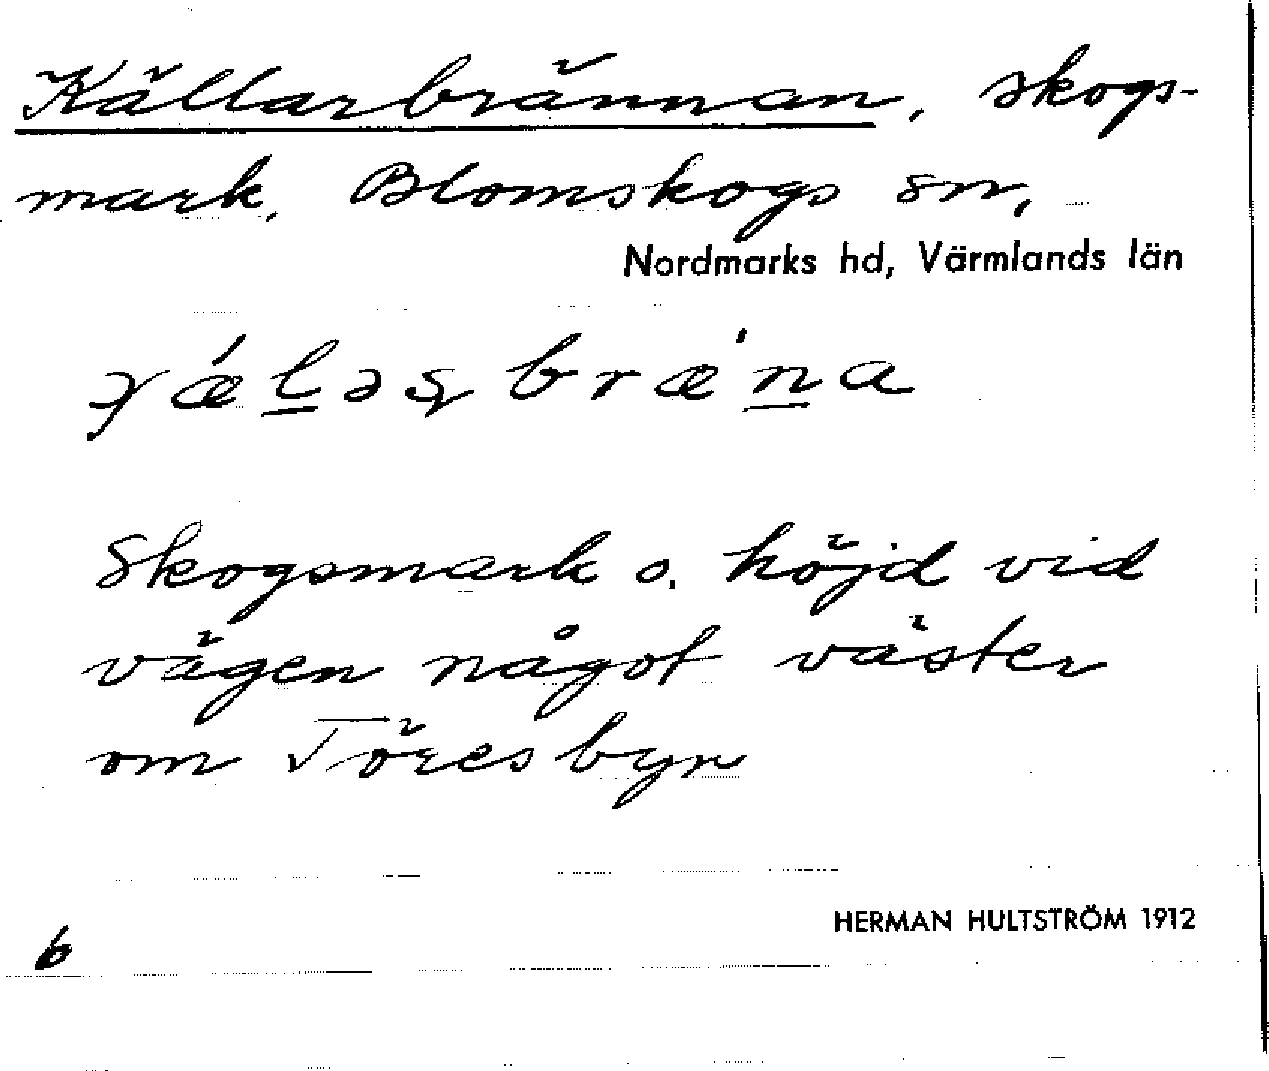 Källarbrännan, skogs-
mark, Blomskogs sn,
Nordmarks hd, Värmlands län
Skogsmark o. höjd vid
vägen något väster
om Töresbyn
HERMAN HULTSTRÖM 1912
6